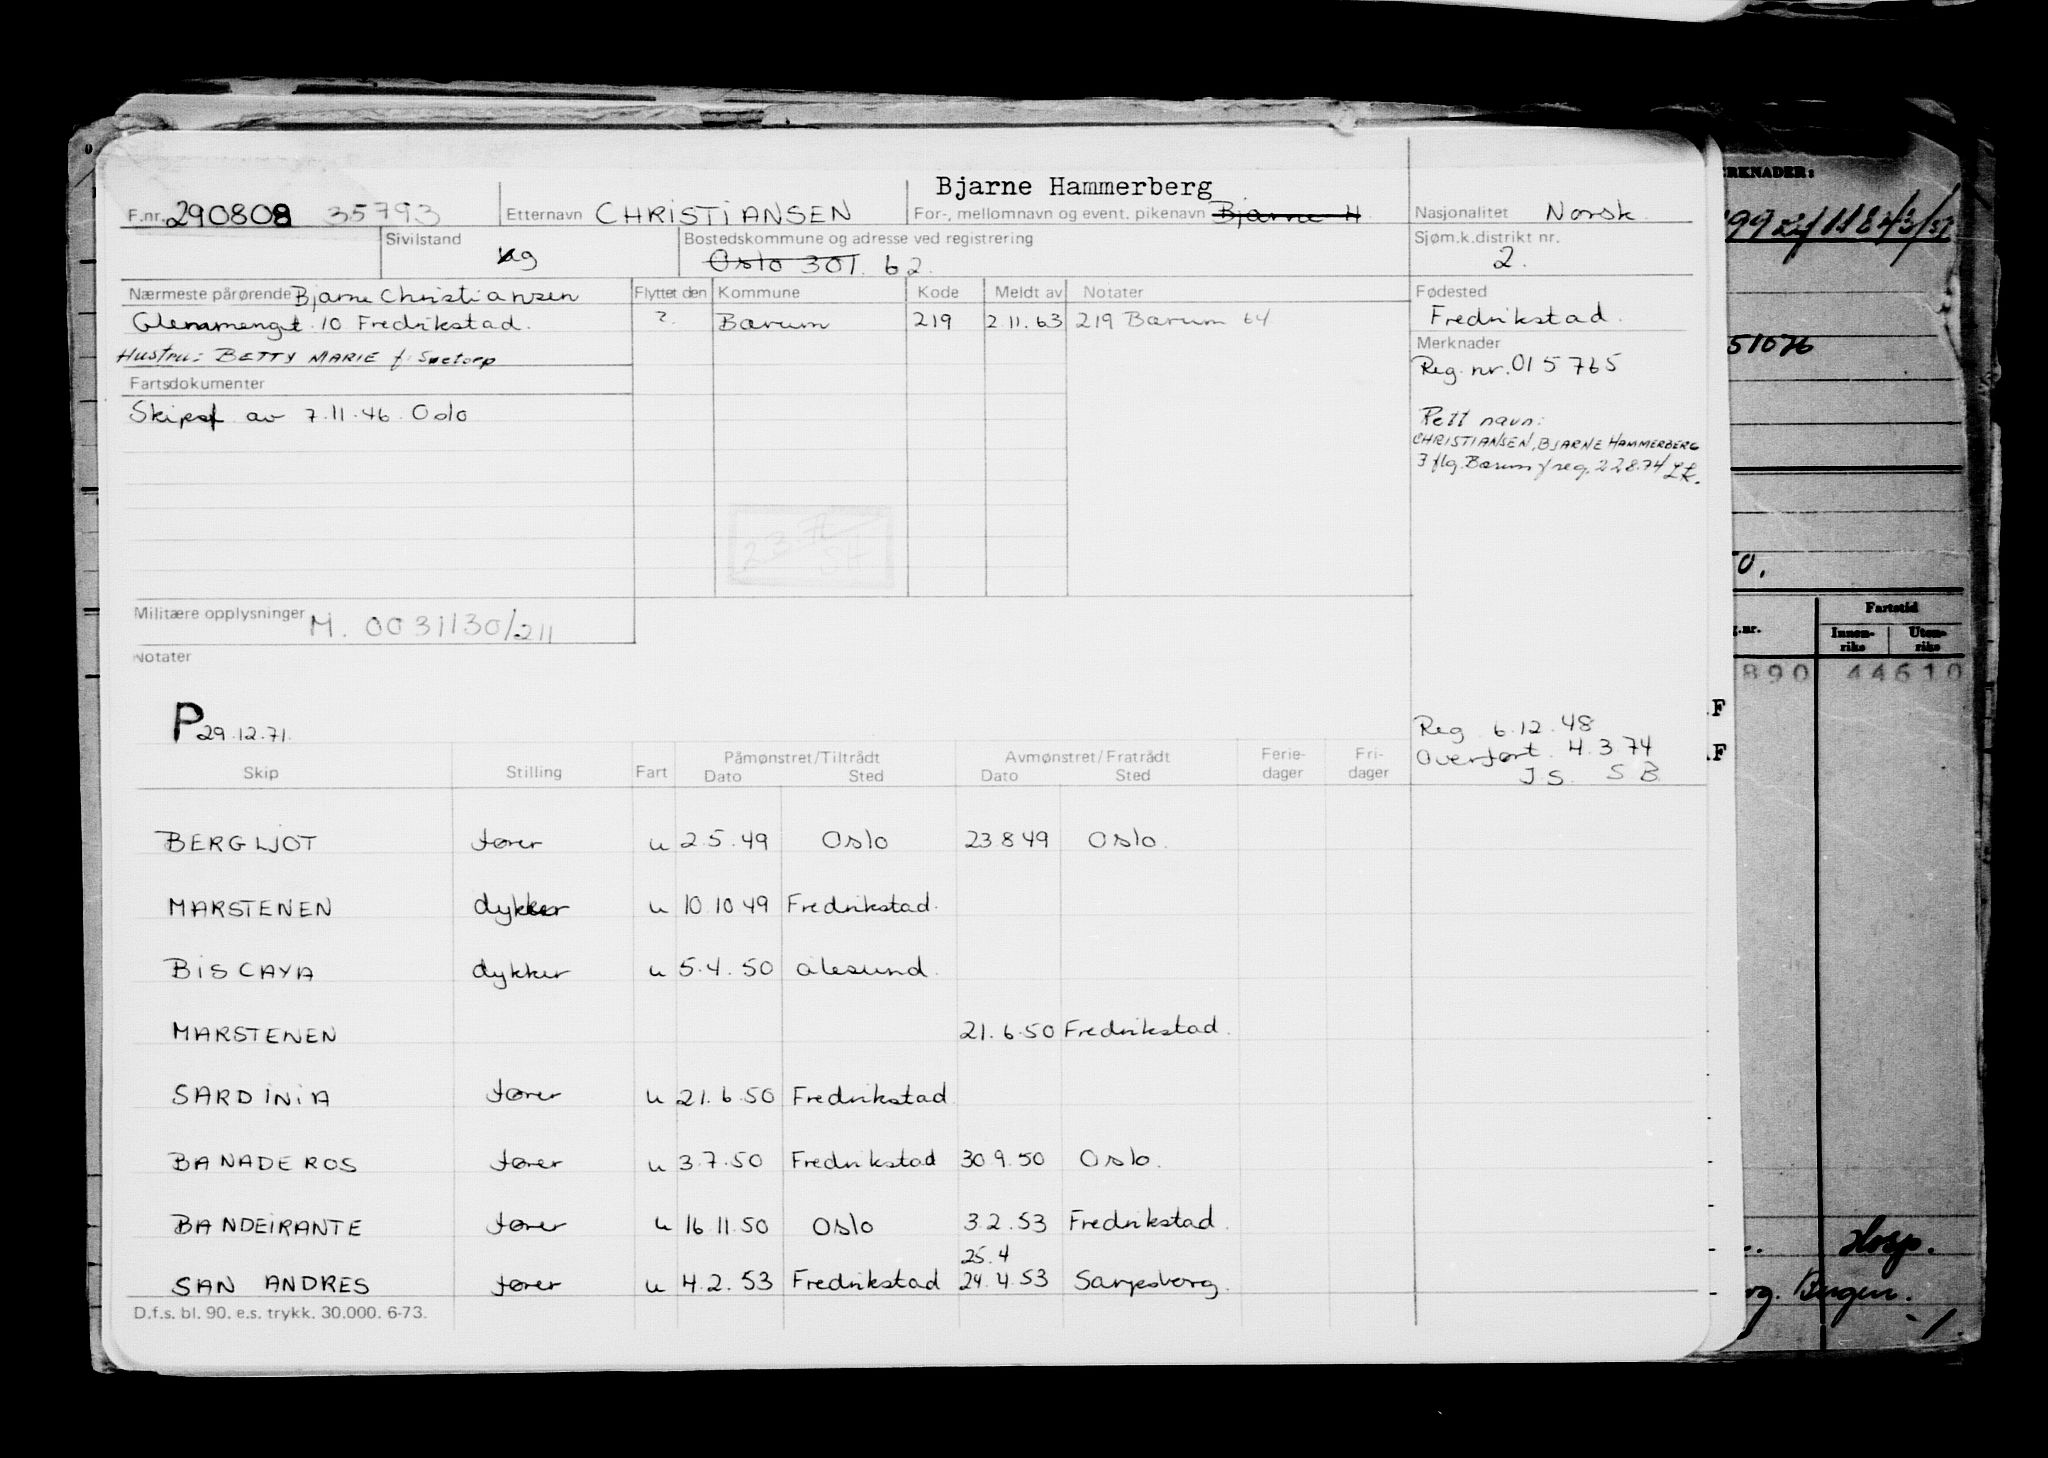 Bjarne Hammerberg
F.nr. 290808 35793 Etternavn CHRISTIANSEN For-, mellomnavn og event. pikenavn Bjarne H Nasjonalitet Norsk
Sivilstand ug Bostedskommune og adresse ved registrering Oslo 301. 62. Sjøm.k.distrikt nr. 2.
Nærmeste pårørende Bjarne Christiansen Flyttet den Kommune Kode Meldt av Notater Fødested
Glemmengt. 10 Fredrikstad. ? Bærum 219 2.11.63 219 Bærum 64 Fredrikstad.
Hustru: BETTY MARIE f. Sætorp Merknader
Reg. nr. 015765
Fartsdokumenter
Skipsf av 7.11.46 Oslo
Rett navn:
CHRISTIANSEN, BJARNE HAMMERBERG
3 flg. Bærum f reg. 22874
Militære opplysninger M. 0031130/211
Notater
P 29.12.71.
Reg 6.12.48
Overført 4.3.74
J.S. S B
Skip Stilling Fart Påmønstret/Tiltrådt Dato Sted Avmønstret/Fratrådt Dato Sted Ferie-dager Fri-dager
BERGLJOT fører u 2.5.49 Oslo 23.8 49 Oslo.
MARSTENEN dykker u 10.10 49 Fredrikstad.
BISCAYA dykker u 5.4.50 ålesund.
MARSTENEN 21.6.50 Fredrikstad.
SARDINIA fører u 21.6.50 Fredrikstad
BANADEROS fører u 3.7.50 Fredrikstad 30.9.50 Oslo.
BANDEIRANTE fører u 16.11.50 Oslo 3.2.53 Fredrikstad.
25.4
SAN ANDRES fører u 4.2.53 Fredrikstad 24.4.53 Sarpsborg.
D.f.s. bl. 90. e.s. trykk. 30.000. 6-73.
51076
Fartstid
Innen-riks Uten-riks
890 44610
Hosp.
Bergen.